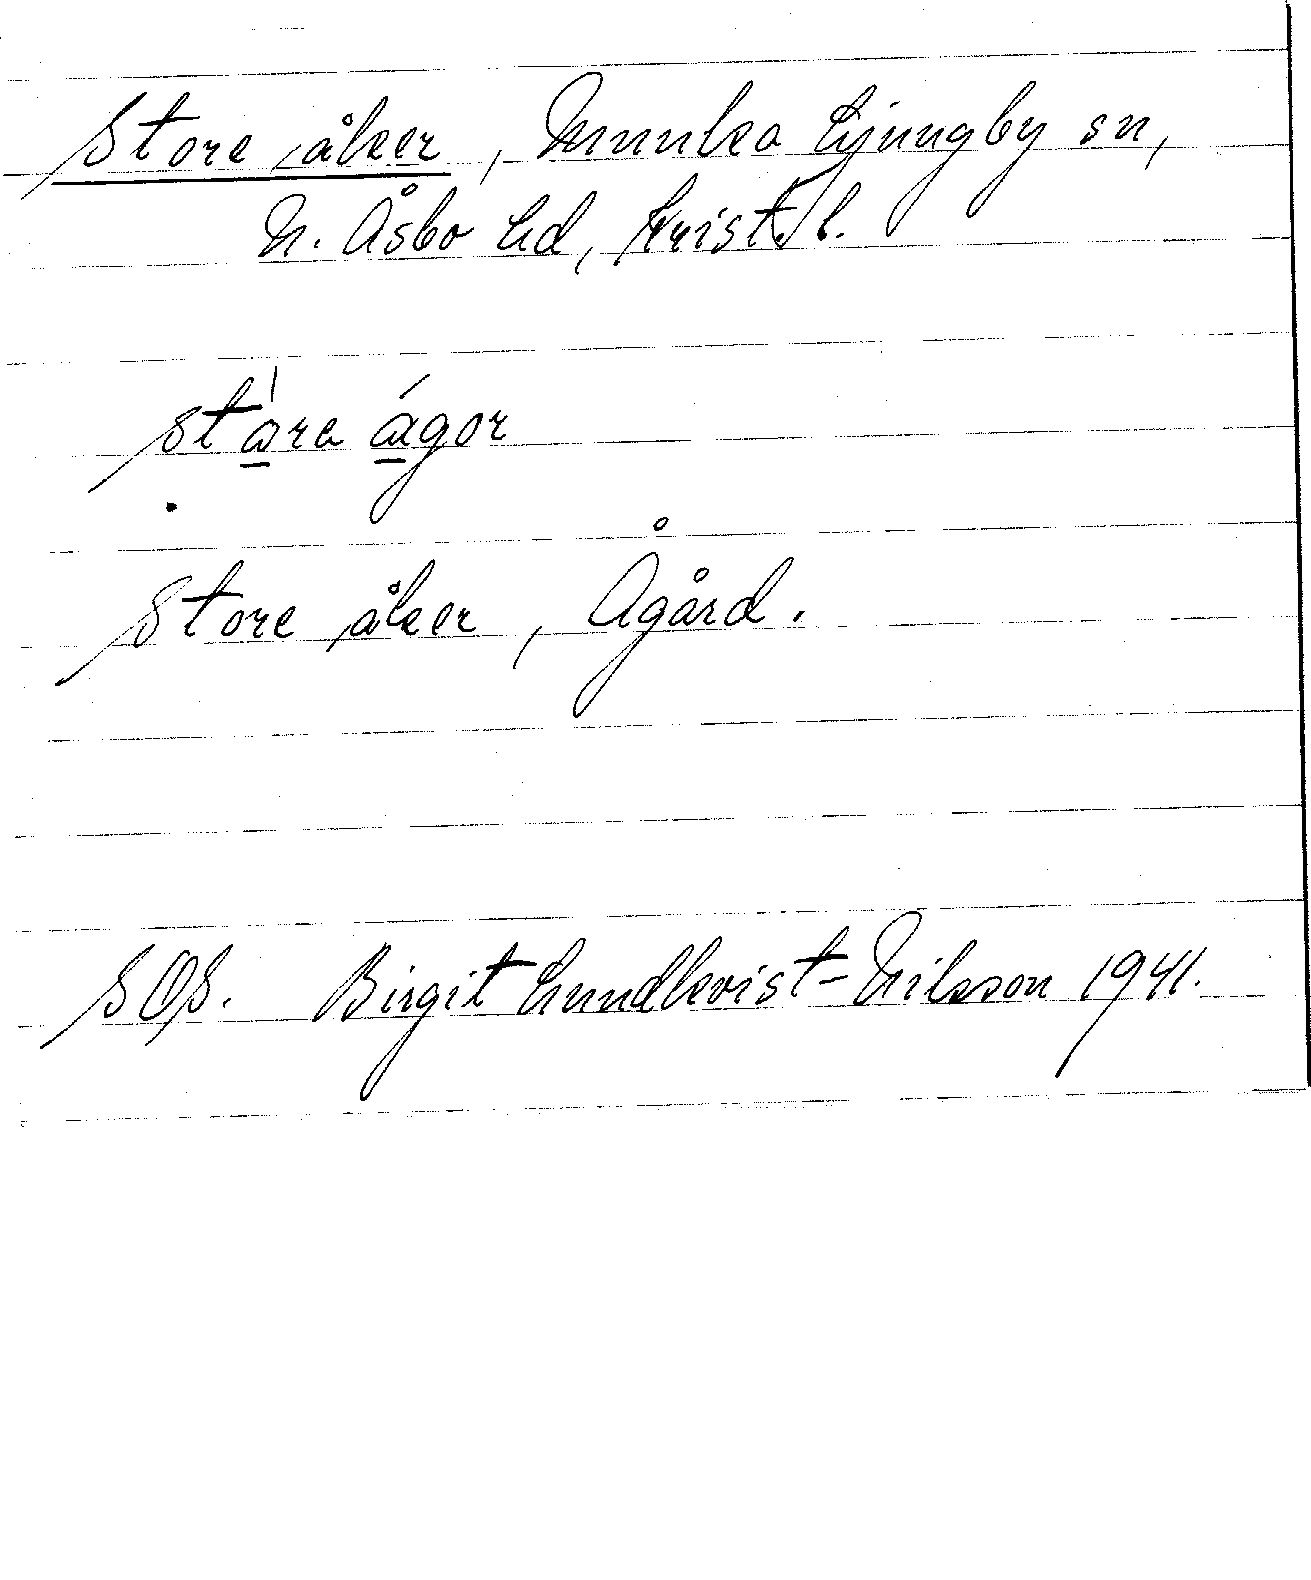 Store åker, Munka Ljungby sn,
N. Åsbo hd, Krist. l.
stara ágor
Store åker, Ågård.
SOS. Birgit Lundkvist-Nilsson 1941.